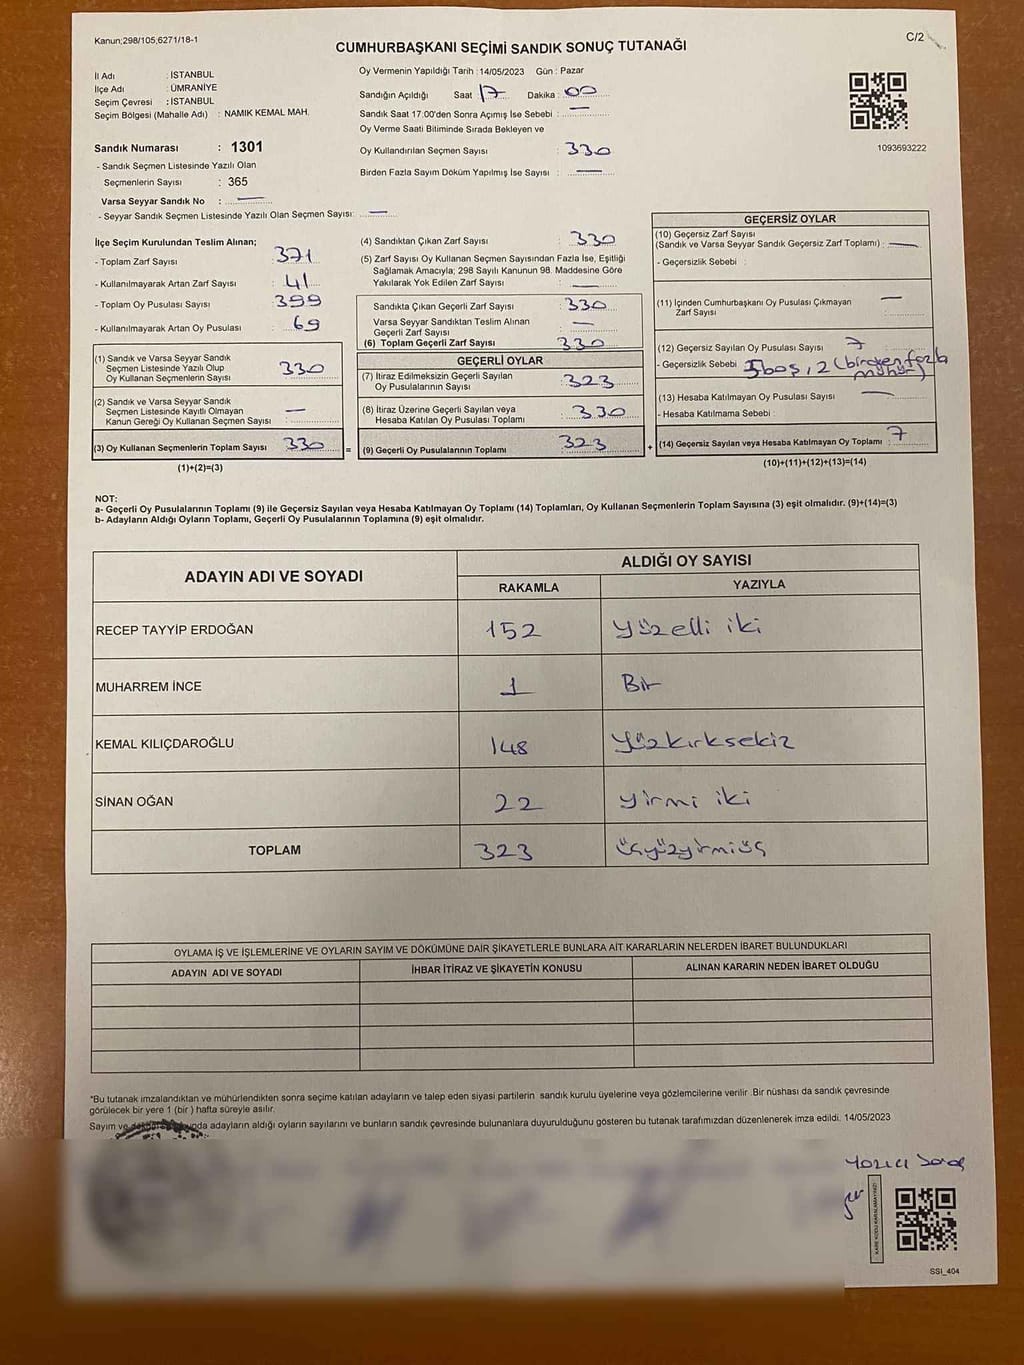 Kanun;298/105;6271/18-1
C/2
CUMHURBAŞKANI SEÇİMİ SANDIK SONUÇ TUTANAĞI
İl Adı : İSTANBUL
İlçe Adı : ÜMRANİYE
Seçim Çevresi : İSTANBUL
Seçim Bölgesi (Mahalle Adı) : NAMIK KEMAL MAH.
Sandık Numarası : 1301
- Sandık Seçmen Listesinde Yazılı Olan
Seçmenlerin Sayısı : 365
Varsa Seyyar Sandık No : —
- Seyyar Sandık Seçmen Listesinde Yazılı Olan Seçmen Sayısı: —
Oy Vermenin Yapıldığı Tarih : 14/05/2023 Gün : Pazar
Sandığın Açıldığı Saat 17 Dakika : 00
Sandık Saat 17:00'den Sonra Açımış İse Sebebi : —
Oy Verme Saati Bitiminde Sırada Bekleyen ve
Oy Kullandırılan Seçmen Sayısı : 330
Birden Fazla Sayım Döküm Yapılmış İse Sayısı : —
1093693222
İlçe Seçim Kurulundan Teslim Alınan;
- Toplam Zarf Sayısı : 371
- Kullanılmayarak Artan Zarf Sayısı : 41
- Toplam Oy Pusulası Sayısı : 399
- Kullanılmayarak Artan Oy Pusulası : 69
(1) Sandık ve Varsa Seyyar Sandık
Seçmen Listesinde Yazılı Olup
Oy Kullanan Seçmenlerin Sayısı : 330
(2) Sandık ve Varsa Seyyar Sandık
Seçmen Listesinde Kayıtlı Olmayan
Kanun Gereği Oy Kullanan Seçmen Sayısı : —
(3) Oy Kullanan Seçmenlerin Toplam Sayısı : 330 =
(1)+(2)=(3)
(4) Sandıktan Çıkan Zarf Sayısı : 330
(5) Zarf Sayısı Oy Kullanan Seçmen Sayısından Fazla İse, Eşitliği
Sağlamak Amacıyla; 298 Sayılı Kanunun 98. Maddesine Göre
Yakılarak Yok Edilen Zarf Sayısı : —
Sandıkta Çıkan Geçerli Zarf Sayısı : 330
Varsa Seyyar Sandıktan Teslim Alınan
Geçerli Zarf Sayısı : —
(6) Toplam Geçerli Zarf Sayısı : 330
GEÇERLİ OYLAR
(7) İtiraz Edilmeksizin Geçerli Sayılan
Oy Pusulalarının Sayısı : 323
(8) İtiraz Üzerine Geçerli Sayılan veya
Hesaba Katılan Oy Pusulası Toplamı : 330
(9) Geçerli Oy Pusulalarının Toplamı : 323 +
GEÇERSİZ OYLAR
(10) Geçersiz Zarf Sayısı
(Sandık ve Varsa Seyyar Sandık Geçersiz Zarf Toplamı) : —
- Geçersizlik Sebebi :
(11) İçinden Cumhurbaşkanı Oy Pusulası Çıkmayan
Zarf Sayısı : —
(12) Geçersiz Sayılan Oy Pusulası Sayısı : 7
- Geçersizlik Sebebi : 5boş, 2 (birden fazla
mühür)
(13) Hesaba Katılmayan Oy Pusulası Sayısı : —
- Hesaba Katılmama Sebebi :
(14) Geçersiz Sayılan veya Hesaba Katılmayan Oy Toplamı : 7
(10)+(11)+(12)+(13)=(14)
NOT:
a- Geçerli Oy Pusulalarının Toplamı (9) ile Geçersiz Sayılan veya Hesaba Katılmayan Oy Toplamı (14) Toplamları, Oy Kullanan Seçmenlerin Toplam Sayısına (3) eşit olmalıdır. (9)+(14)=(3)
b- Adayların Aldığı Oyların Toplamı, Geçerli Oy Pusulalarının Toplamına (9) eşit olmalıdır.
ADAYIN ADI VE SOYADI
ALDIĞI OY SAYISI
RAKAMLA YAZIYLA
RECEP TAYYİP ERDOĞAN 152 yüzelli iki
MUHARREM İNCE 1 Bir
KEMAL KILIÇDAROĞLU 148 yüzkırksekiz
SİNAN OĞAN 22 yirmi iki
TOPLAM 323 üçyüzyirmiüç
OYLAMA İŞ VE İŞLEMLERİNE VE OYLARIN SAYIM VE DÖKÜMÜNE DAİR ŞİKAYETLERLE BUNLARA AİT KARARLARIN NELERDEN İBARET BULUNDUKLARI
ADAYIN ADI VE SOYADI İHBAR İTİRAZ VE ŞİKAYETİN KONUSU ALINAN KARARIN NEDEN İBARET OLDUĞU
"Bu tutanak imzalandıktan ve mühürlendikten sonra seçime katılan adayların ve talep eden siyasi partilerin sandık kurulu üyelerine veya gözlemcilerine verilir. Bir nüshası da sandık çevresinde
görülecek bir yere 1 (bir ) hafta süreyle asılır.
Sayım ve adayların aldığı oyların sayılarını ve bunların sandık çevresinde bulunanlara duyurulduğunu gösteren bu tutanak tarafımızdan düzenlenerek imza edildi. 14/05/2023
KARE KODU KARALAMAYINIZ!
SSI_404